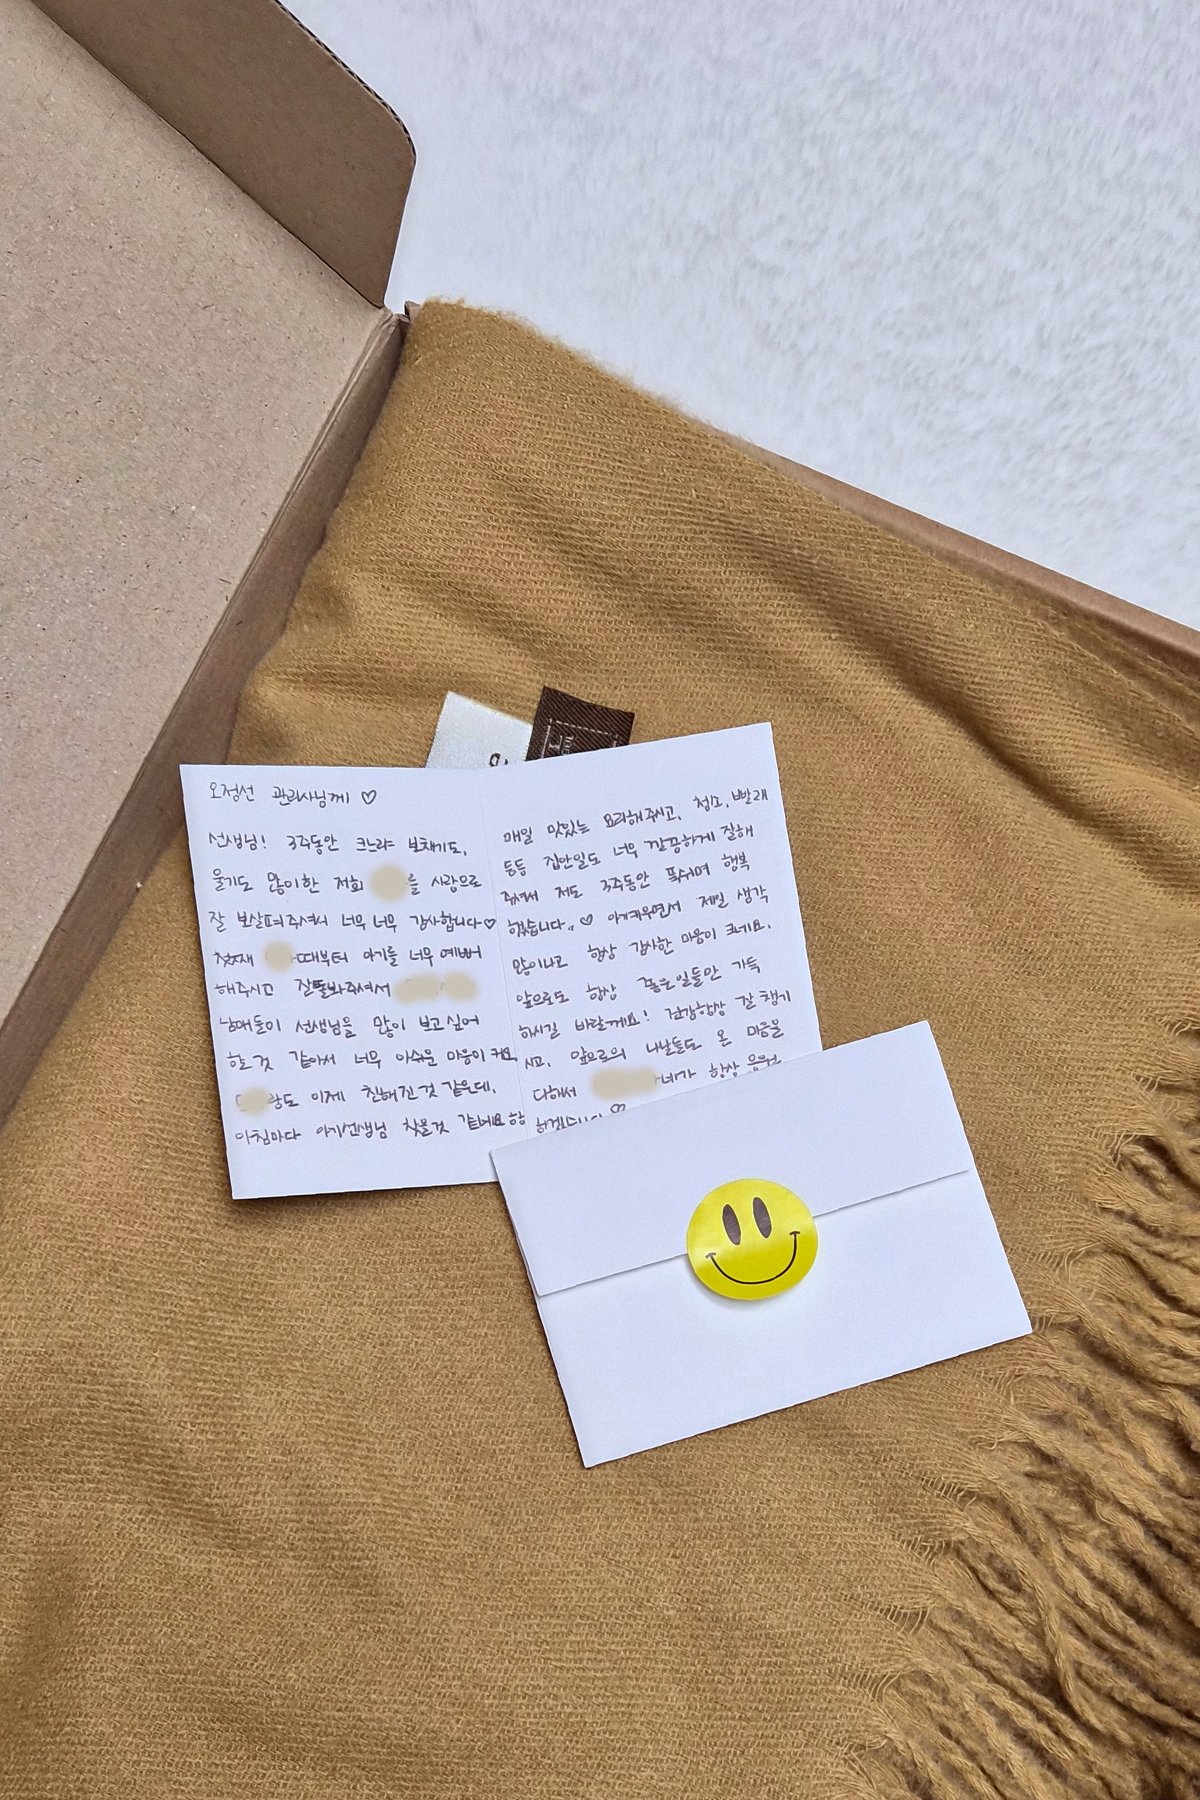 오정선 관리사님께 ♡
선생님! 3주동안 크느라 보채기도,
울기도 많이한 저희 를 사랑으로
잘 보살펴주셔서 너무 너무 감사합니다♡
첫째 때부터 아기를 너무 예뻐
해주시고 잘돌봐주셔서
남매들이 선생님을 많이 보고싶어
할 것 같아서 너무 아쉬운 마음이 커요
랑도 이제 친해진것 같은데,
아침마다 아기선생님 찾을것 같네요 항
매일 맛있는 요리해주시고, 청소, 빨래
등등 집안일도 너무 깔끔하게 잘해
주셔서 저도 3주동안 푹쉬며 행복
했습니다.. ♡ 아기키우면서 제일 생각
많이나고 항상 감사한 마음이 크네요.
앞으로도 항상 좋은일들만 가득
하시길 바랄께요! 건강항상 잘 챙기
시고, 앞으로의 나날들도 온 마음을
다해서 네가 항상 응원